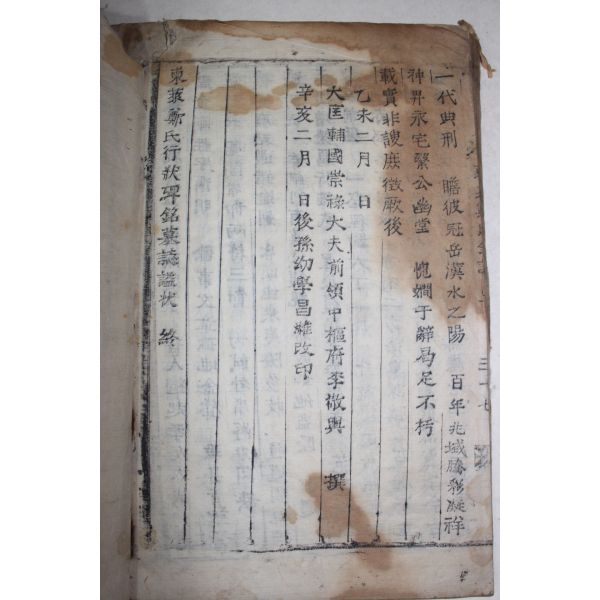 一代典刑 瞻彼冠岳漢水之陽 百年兆域勝彩凝祥
神畀永宅緊公幽堂 愧嫺于辭曷足不朽
載實非諛庶徵厥後
乙未二月 日
大匡輔國崇祿大夫前領中樞府李敬輿 撰
辛亥二月 日後孫幼學昌雖改印
東萊鄭氏行狀碑銘墓誌諡狀 終
三十七